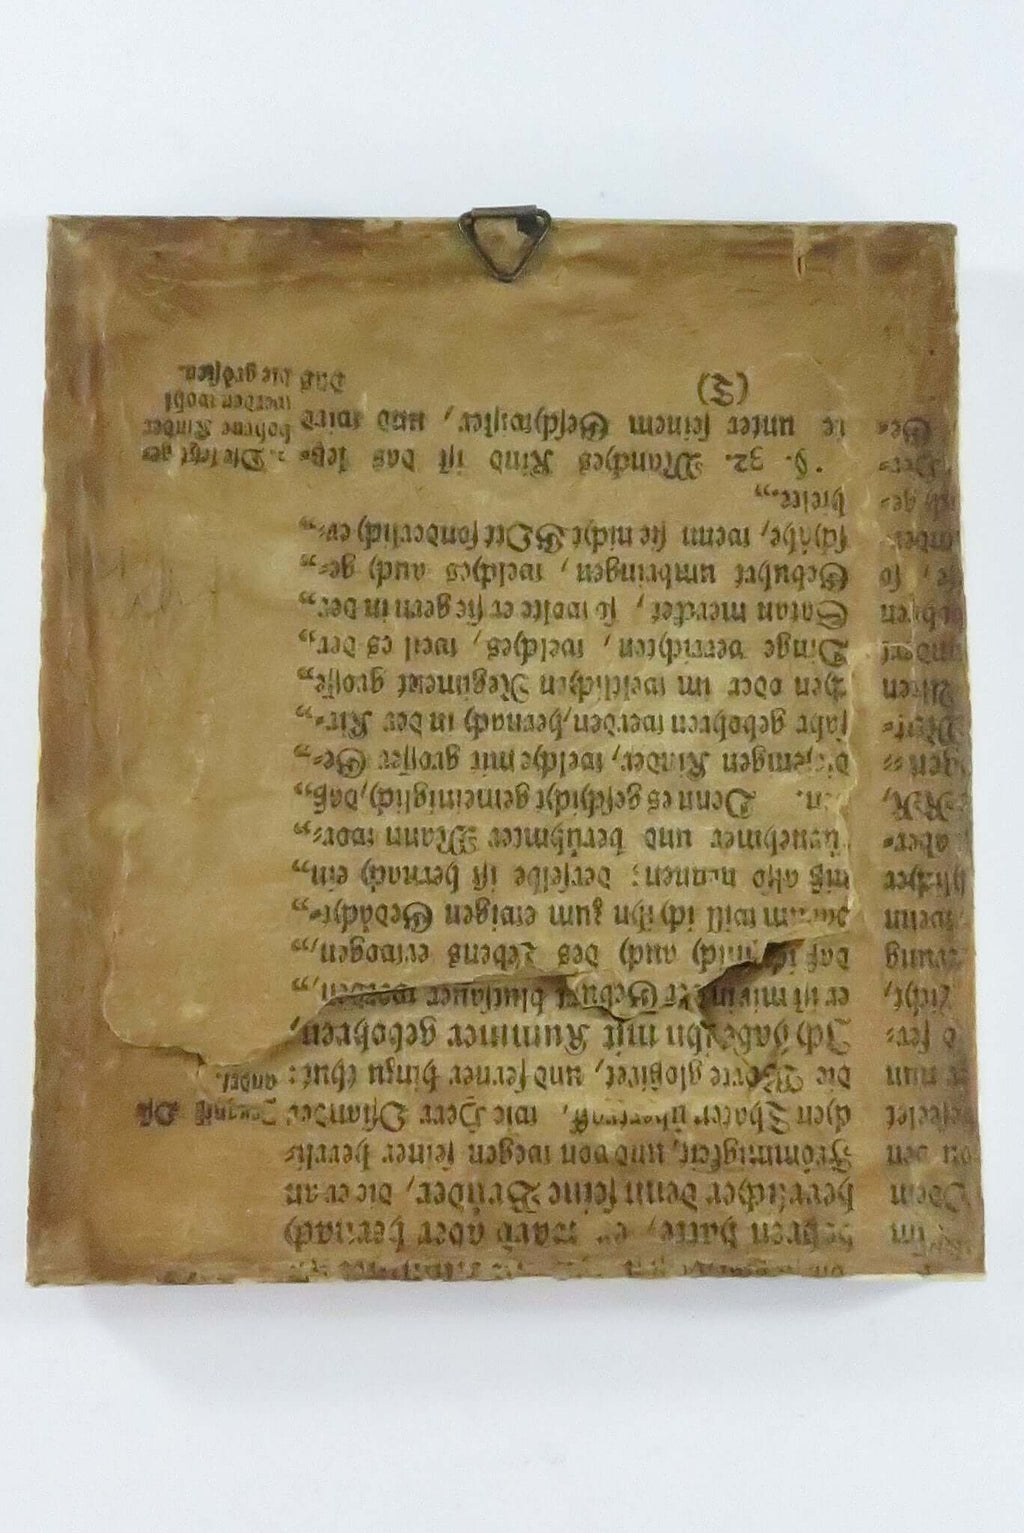 im
Dem
von den
beseelet
er nun
o fer⸗
zicht,
rung
wenn
aber⸗
RR,
gen⸗
Alten
und
so
der⸗
Ge⸗
bohren hatte, er ward aber hernach
herrlicher denn seine Brüder, die er an
Frömmigkeit, und von wegen seiner herrli⸗
chen Thaten übertroff, wie Herr Osiander
die Worte glosiret, und ferner hinzu thut:
Ich habe ihn mit Kummer gebohren,
er ist mir in der Geburt blutsauer worden,„
daß ich mich auch des Lebens erwogen,„
darum will ich ihn zum ewigen Gedächt⸗„
niß also nennen; derselbe ist hernach ein„
fürnehmer und berühmter Mann wor⸗„
den. Denn es geschicht gemeiniglich, daß„
diejenigen Kinder, welche mit grosser Ge⸗„
fahr gebohren werden, hernach in der Kir⸗„
chen oder im weltlichen Regiment grosse„
Dinge verrichten, welches, weil es der„
Satan mercket, so wolte er sie gern in der„
Gebuhrt umbringen, welches auch ge⸗„
schähe, wenn sie nicht GOtt sonderlich er⸗„
hielte.„
§. 32. Manches Kind ist das letz⸗
te unter seinem Geschwister, und wird
(T) Das
Zeugniß Osi
andri.
2. Die letzt ge⸗
bohrne Kinder
werden wohl
die grösten.